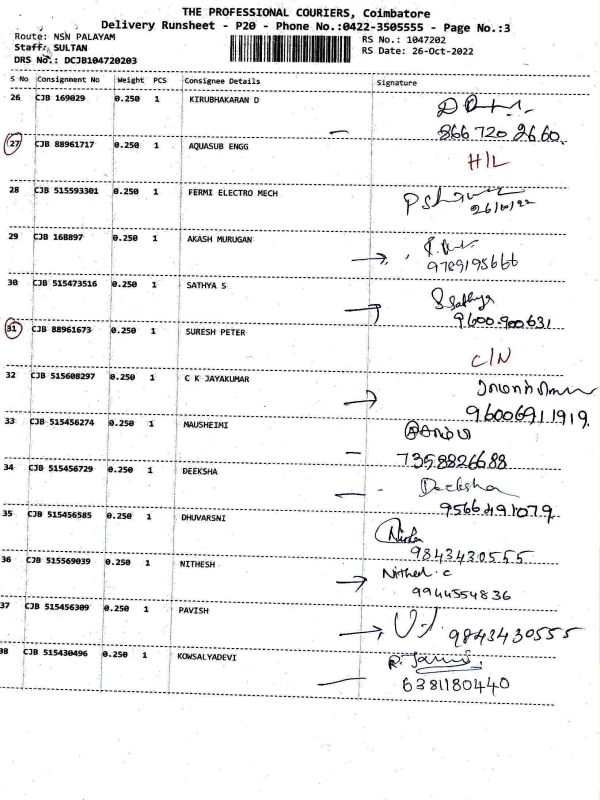 THE PROFESSIONAL COURIERS, Coimbatore
Delivery Runsheet - P20 - Phone No.:0422-3505555 - Page No.:3
Route: NSN PALAYAM
RS No.: 1047202
Staff: SULTAN
RS Date: 26-Oct-2022
DRS No.: DCJB104720203
S No Consignment No Weight PCS Consignee Details Signature
26 CJB 169029 0.250 1 KIRUBHAKARAN D
866 720 2660
27 CJB 88961717 0.250 1 AQUASUB ENGG
H/L
28 CJB 515593301 0.250 1 FERMI ELECTRO MECH
26/10/22
29 CJB 168897 0.250 1 AKASH MURUGAN
9789195666
30 CJB 515473516 0.250 1 SATHYA S
S Sathya
9600900631
31 CJB 88961673 0.250 1 SURESH PETER
C/N
32 CJB 515608297 0.250 1 C K JAYAKUMAR
96006911919
33 CJB 515456274 0.250 1 MAUSHEIMI
7358826688
34 CJB 515456729 0.250 1 DEEKSHA
Deeksha
9566491079
35 CJB 515456585 0.250 1 DHUVARSNI
9843430555
36 CJB 515569039 0.250 1 NITHESH
Nithesh.c
9944554836
37 CJB 515456309 0.250 1 PAVISH
9843430555
38 CJB 515430496 0.250 1 KOWSALYADEVI
6381180440